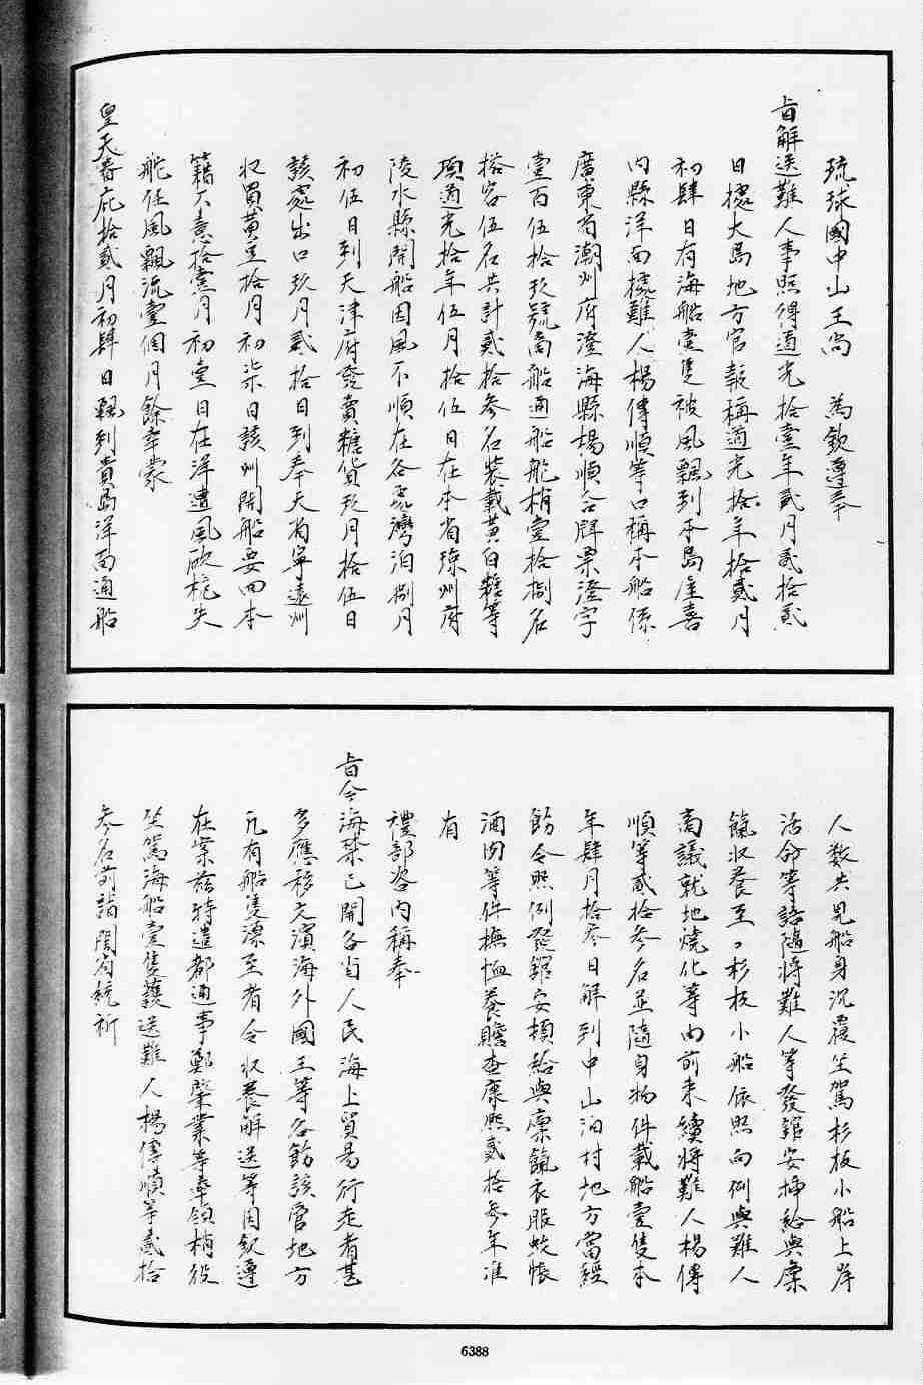 琉球國中山王尚　為欽遵奉
旨解送難人事照得道光拾壹年貳月貳拾貳
日據大島地方官報稱道光拾年拾貳月
初肆日有海船壹隻被風飄到本島屋喜
內縣洋面據難人楊傳順等口稱本船係
廣東省潮州府澄海縣楊順合牌票澄字
壹百伍拾玖號商船通船舵梢壹拾捌名
搭客伍名共計貳拾參名裝載黃白糖等
項道光拾年伍月拾伍日在本省瓊州府
陵水縣開船因風不順在各處灣泊捌月
初伍日到天津府發賣糖貨玖月拾伍日
該處出口玖月貳拾日到奉天省寧遠州
收買黃豆拾月初柒日該州開船要回本
籍不意拾壹月初壹日在洋遭風砍桅失
舵任風飄流壹個月餘幸蒙
皇天眷庇拾貳月初肆日飄到貴島洋面通船
人數共見船身沉覆坐駕杉板小船上岸
活命等語隨將難人等發館安插給與廩
餼收養至於杉板小船依照向例與難人
商議就地燒化等由前來續將難人楊傳
順等貳拾參名並隨身物件載船壹隻本
年肆月拾參日解到中山泊村地方當經
飭令照例發館安頓給與廩餼衣服蚊帳
酒肉等件撫恤養贍查康熙貳拾參年准
有
禮部咨內稱奉
旨今海禁已開各省人民海上貿易行走者甚
多應移文濱海外國王等各飭該管地方
凡有船隻漂至者令收養解送等因欽遵
在案茲特遣都通事鄭肇業等率領梢役
坐駕海船壹隻護送難人楊傳順等貳拾
參名前詣閩省統祈
6388